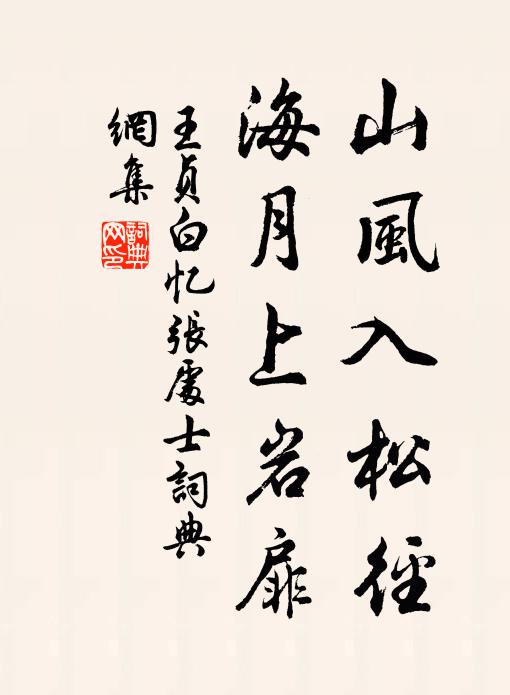 山風入松徑
海月上岩扉
王貞白忆張處士詞典
網集
詞典
网印